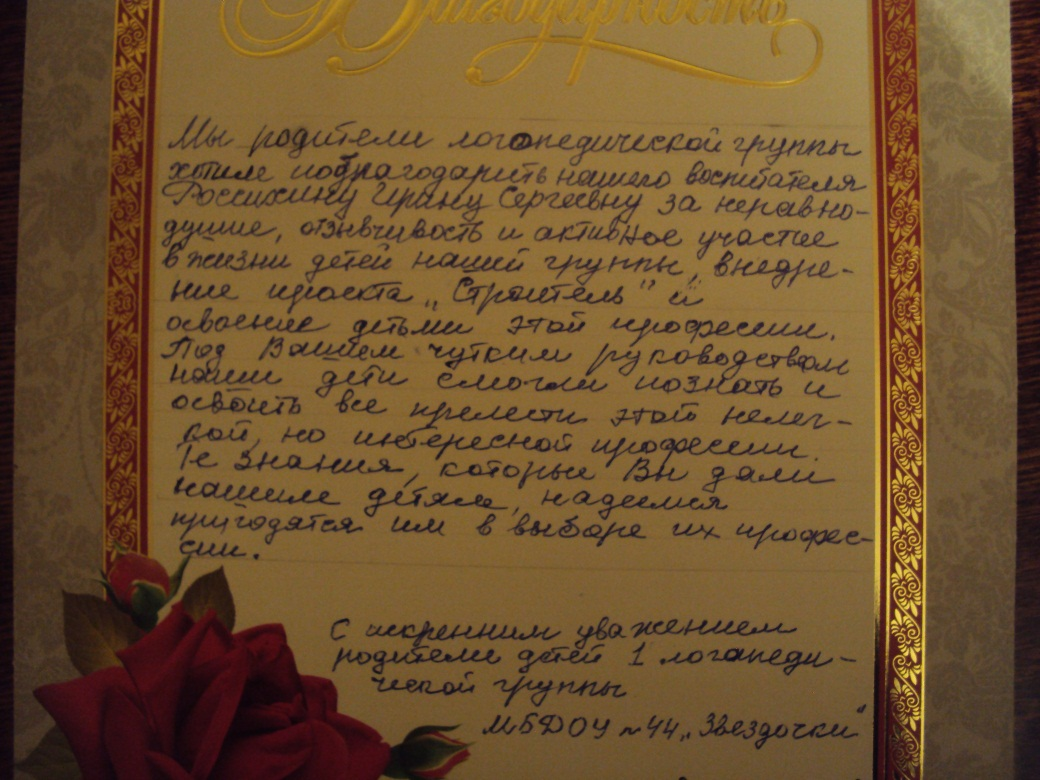 Благодарность
Мы родители логопедической группы
хотим поблагодарить нашего воспитателя
Россихину Ирину Сергеевну за неравно-
душие, отзывчивость и активное участие
в жизни детей нашей группы, внедре-
ние проекта „Строитель" и
освоение детьми этой профессии.
Под Вашим чутким руководством
наши дети смогли познать и
освоить все прелести этой нелег-
кой, но интересной профессии.
Те знания, которые Вы дали
нашим детям, надеемся
пригодятся им в выборе их профес-
сии.
С искренним уважением
родители детей 1 логопеди-
ческой группы
МБДОУ №44 „Звездочки"